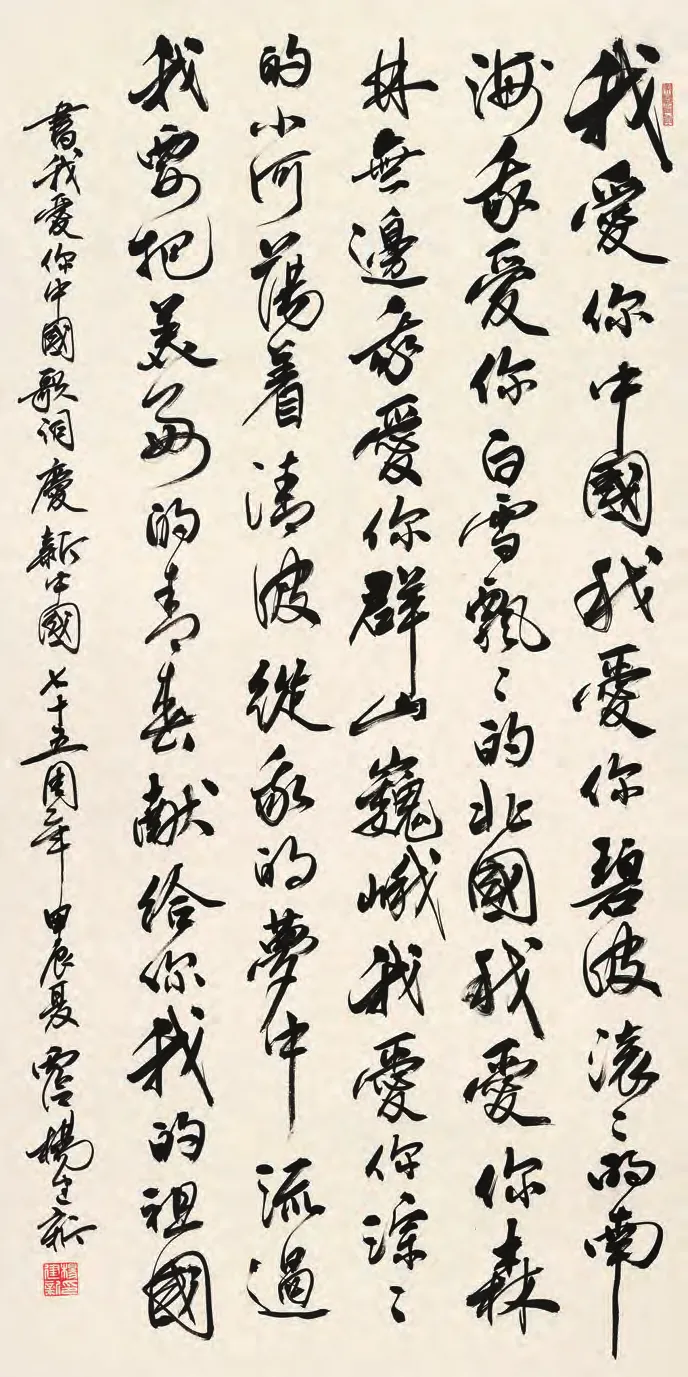 我愛你中國我愛你碧波滾〻的南
海我愛你白雪飄〻的北國我愛你森
林無邊我愛你群山巍峨我愛你淙〻
的小河蕩着清波從我的夢中流過
我要把美好的青春獻給你我的祖國
書我愛你中國歌詞慶新中國七十五周年甲辰夏楊建新